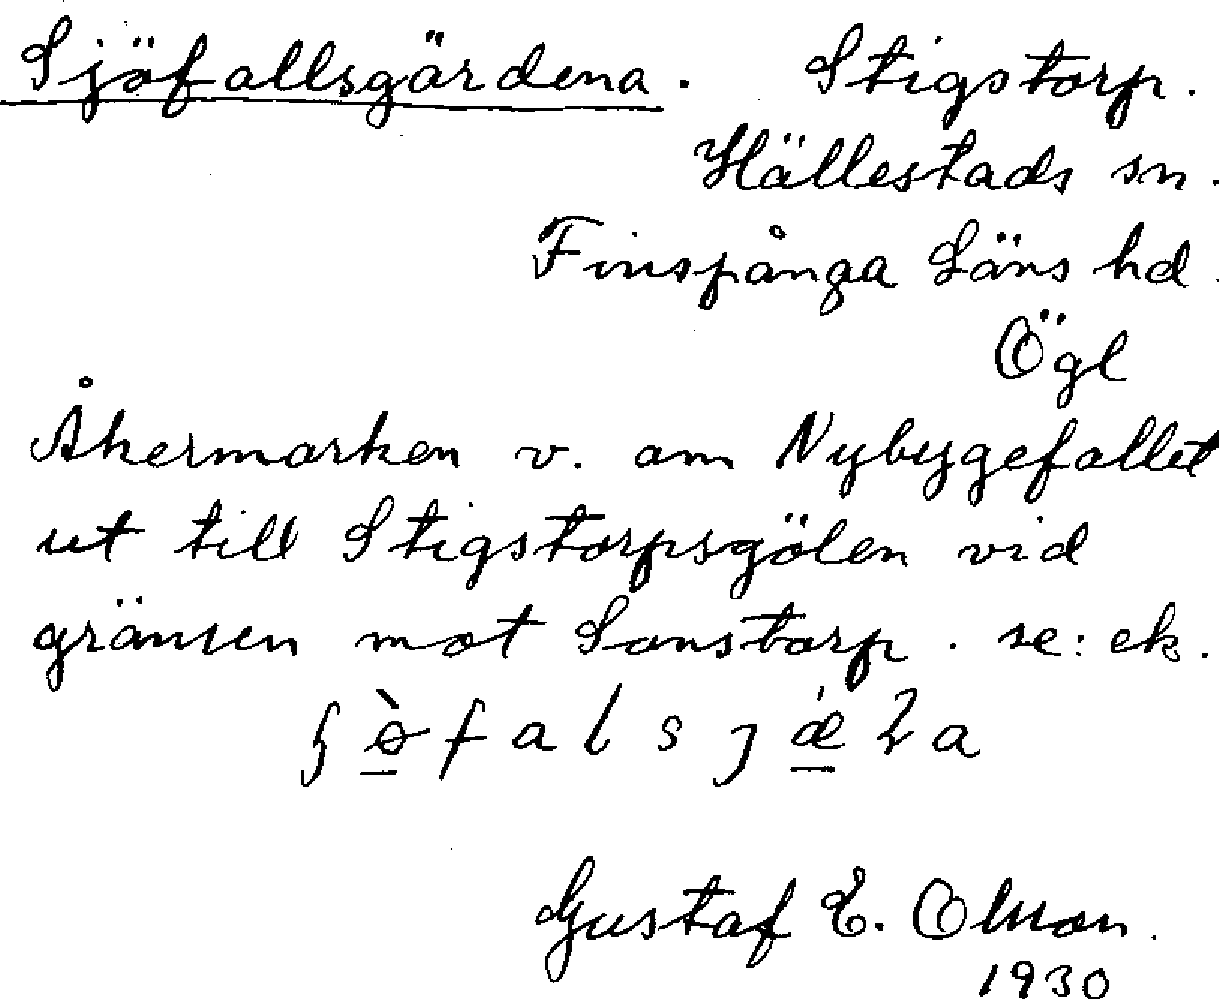 Sjöfallsgärdena. Stigstorp.
Hällestads sn.
Finspånga Läns hd.
Ögl
Åkermarken v. om Nybygefallet
ut till Stigstorpsgölen vid
gränsen mot Sonstorp. se: ek.
Gustaf E. Olsson.
1930